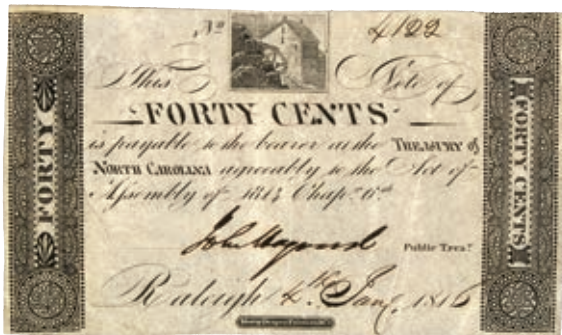 No 4122
This Note of
FORTY CENTS
is payable to the bearer at the TREASURY of
NORTH CAROLINA agreeably to the Act of
Assembly of 1814 Chap.
John Haywood Public Trea.r
Raleigh 4th Jany. 1816
FORTY
FORTY CENTS